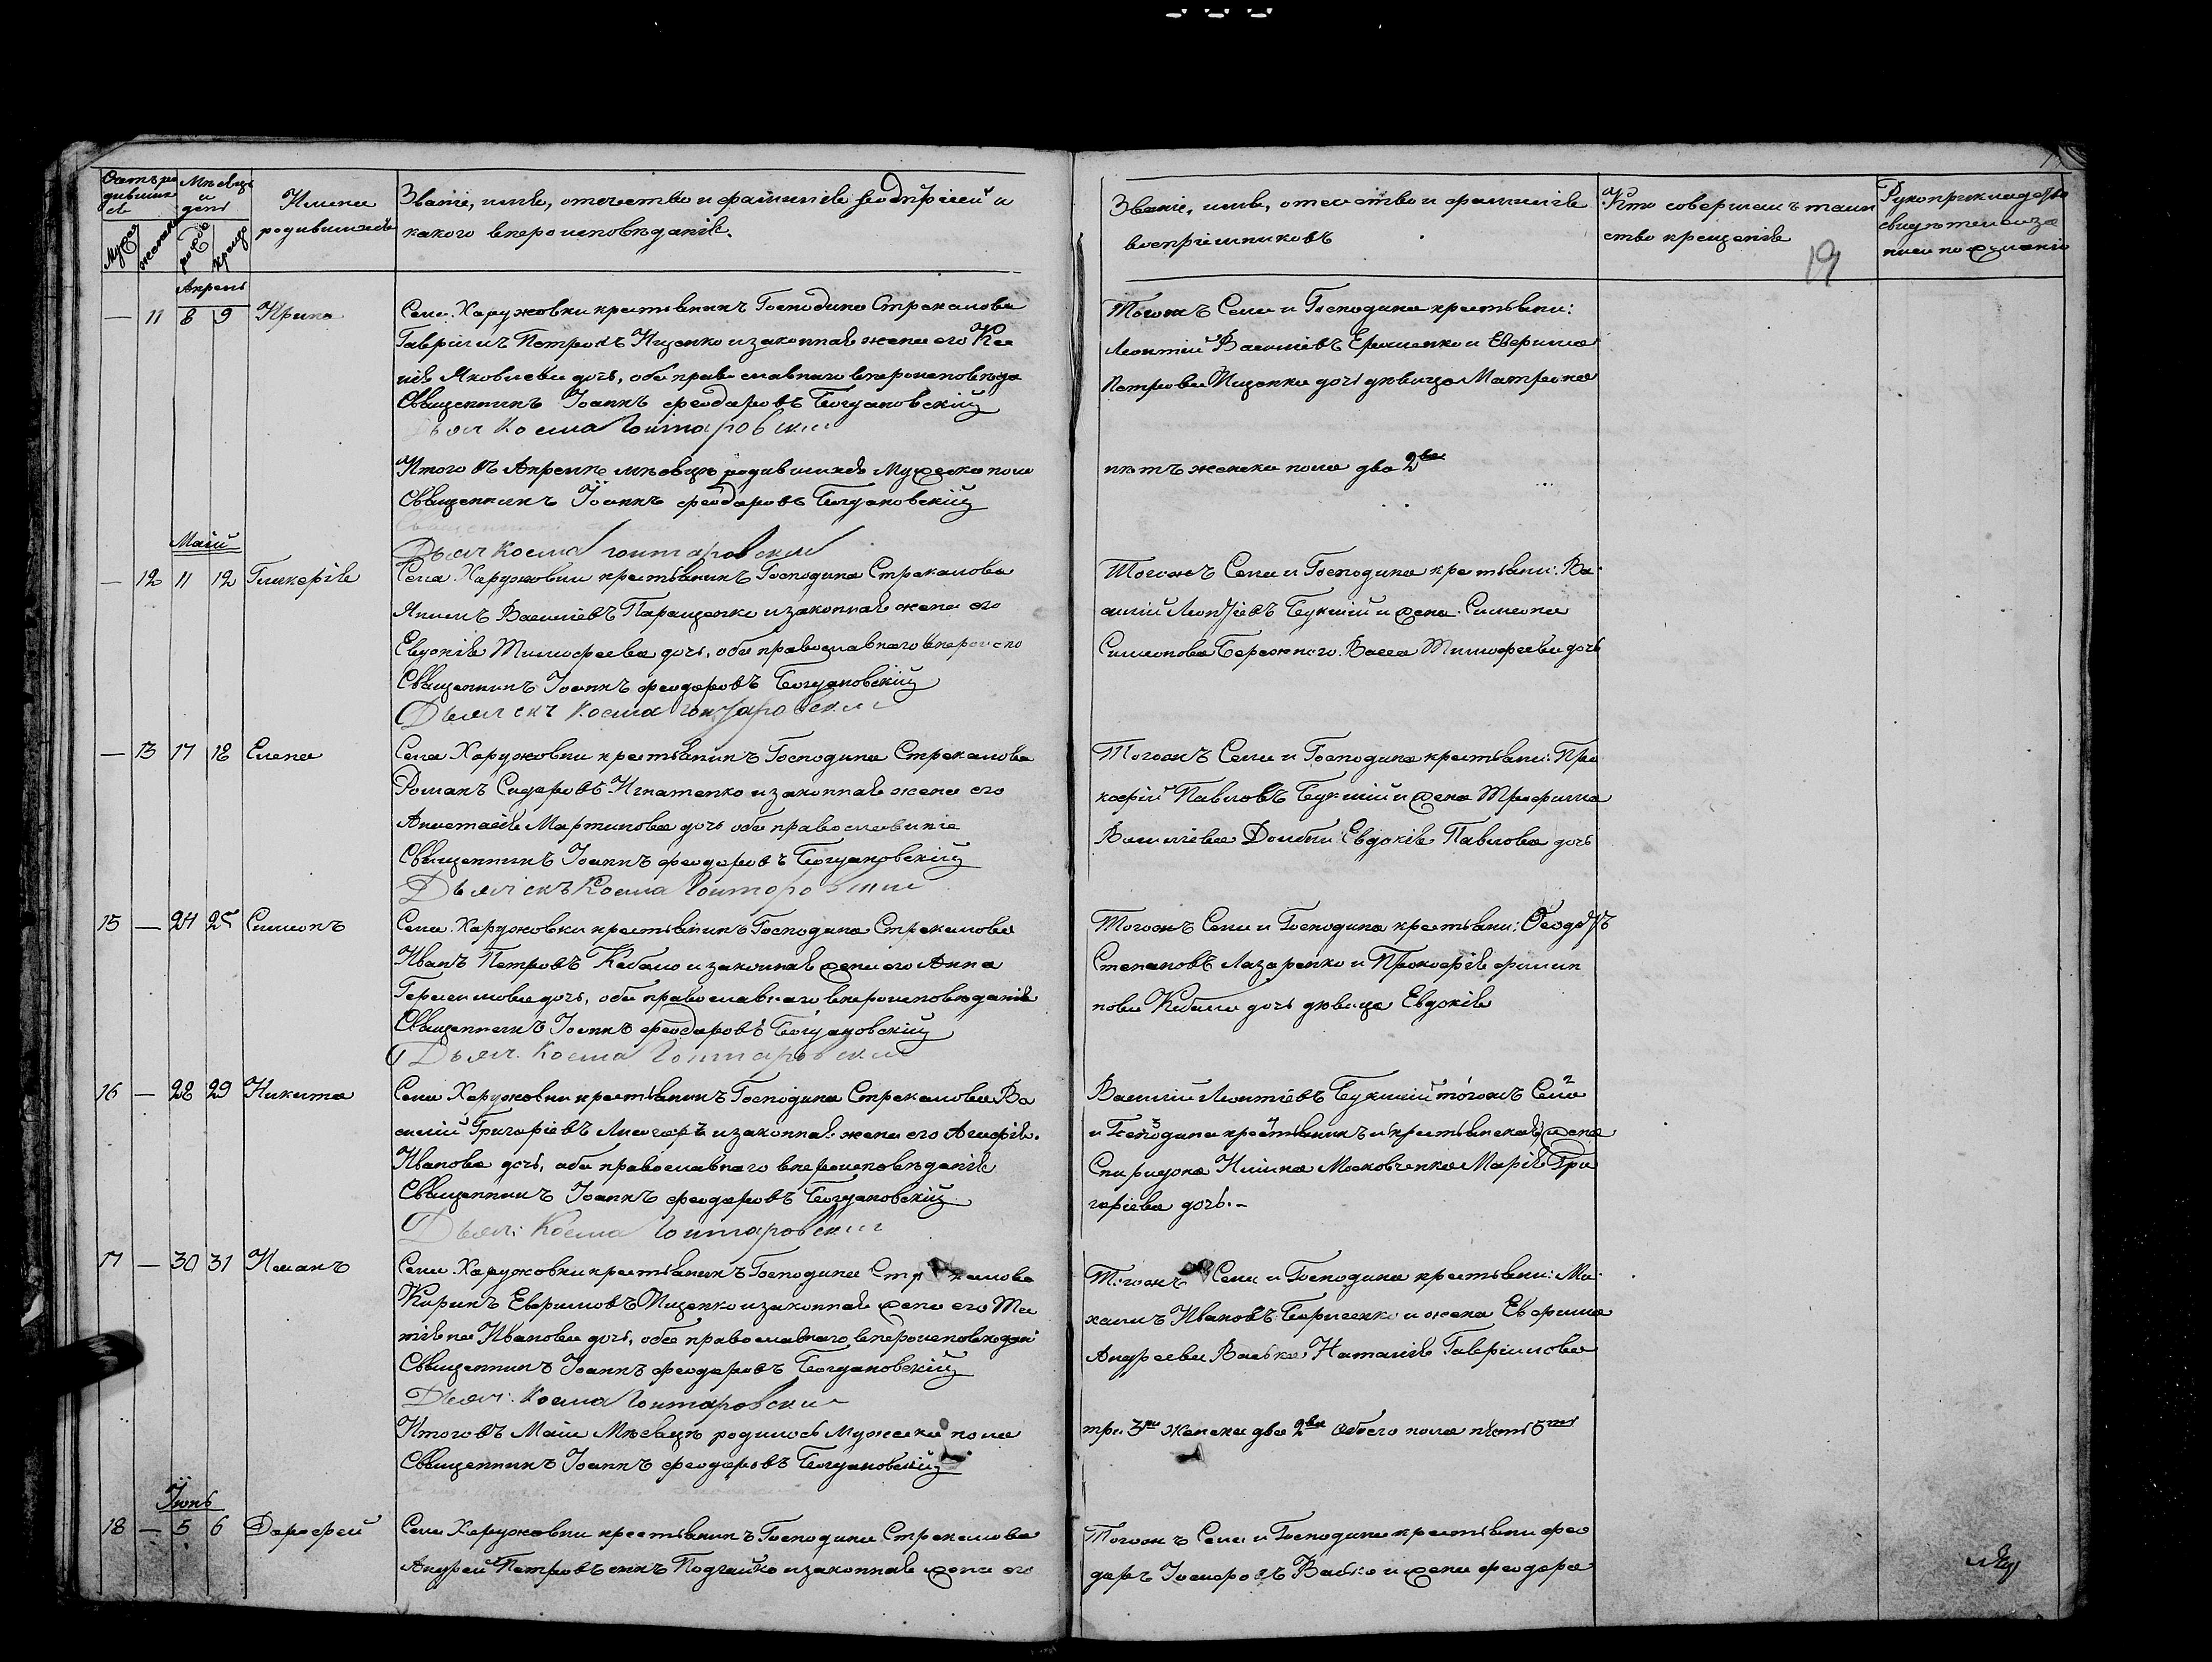 Счетъ ро
дивших
ся
Мѣсяцъ
и
день
Мужеск
женска
рожде
креще
Имена
родившихся
Званіе, имя, отечество и фамилія родителей и
какого вѣроисповѣданія.
Званіе, имя, отечество и фамилія
воспріемниковъ
Кто совершалъ таин
ство крещенія
Рукоприкладство
свидѣтелей за
писи по желанію
19
Апрель
— 11 8 9 Ирина
Села Харужовки крестьянинъ Господина Стракалова
Гавріилъ Петровъ Ищенко и законная жена его Ксе
нія Яковлева дочь, оба православнаго вѣроисповѣда
Священникъ Іоаннъ Феодоровъ Богдановскій
Дьяч Косма Гонтаровскии
Тогожъ Села и Господина крестьяни:
Леонтій Василіевъ Ермоленко и Евфима
Петрова Ищенка дочь дѣвица Матрона
Итого въ Апрелѣ мѣсяцѣ родившихся Мужеска пола
Священникъ Іоаннъ Феодоровъ Богдановскій
нѣтъ женска пола два 2ва
Дьяч Косма Гонтаровский
Маій
— 12 11 12 Гликерія
Села Харужовки крестьянинъ Господина Стракалова
Василіевъ Паращенко и законная жена его
Евдокія Тимофеева дочь, оба православнаго вѣроиспо
Священникъ Іоаннъ Феодоровъ Богдановскій
Дьячекъ Косма Гонтаровскии
Тогожъ Села и Господина крестьяни: Ва
силій Леонтіевъ Букшій и жена Симеона
Симеонова Бережного Васса Тимофеева дочь
— 13 17 18 Елена
Села Харужовки крестьянинъ Господина Стракалова
Романъ Сидоровъ Игнатенко и законная жена его
Анастасія Мартинова дочь оба православніе
Священникъ Іоаннъ Феодоровъ Богдановскій
Дьячекъ Косма Гонтаровскии
Тогожъ Села и Господина крестьяни: Про
кофій Павловъ Букшій и жена Трофима
Василіева Долбни Евдокія Павлова дочь
15 — 24 25 Симеонъ
Села Харужовки крестьянинъ Господина Стракалова
Иванъ Петровъ Кабало и законная жена его Анна
Герасимова дочь, оба православнаго вѣроисповѣданія
Священникъ Іоаннъ Феодоровъ Богдановскій
Дьяч. Косма Гонтаровскии
Тогожъ Села и Господина крестьяни: Феодоръ
Степановъ Лазаренко и Прокофія Филип
пова Кабали дочь дѣвица Евдокія
16 — 28 29 Никита
Села Харужовки крестьянинъ Господина Стракалова Ва
силій Григоріевъ Лисогоръ и законная жена его Агафія
Иванова дочь, оба православнаго вѣроисповѣданія
Священникъ Іоаннъ Феодоровъ Богдановскій
Дьяч: Косма Гонтаровскии
Василій Леонтіевъ Букшій тогожъ Села
и Господина крестьянинъ и крестьянская жена
Спиридона Ильина Московченка Марія Гри
горіева дочь.–
17 — 30 31 Исаакъ
Села Харужовки крестьянинъ Господина Стракалова
Кирилъ Евфимовъ Ищенко и законная жена его Та
тіяна Иванова дочь, оба православнаго вѣроисповѣдані
Священникъ Іоаннъ Феодоровъ Богдановскій
Дьяч: Косма Гонтаровскии
Тогожъ Села и Господина крестьяни: Ми
хаилъ Ивановъ Борисенко и жена Евфима
Андреева Васька Наталія Гавріилова
Итого въ Маіи Мѣсяцѣ родилось Мужеска пола
Священникъ Іоаннъ Феодоровъ Богдановскій
три 3ри Женска два 2ва Обоего пола пять 5ть
Іюнь
18 — 5 6 Дорофей
Села Харужовки крестьянинъ Господина Стракалова
Андрей Петровъ синъ Подгайко и законная жена его
Тогожъ Села и Господина крестьяни Фео
доръ Іосифовъ Васько и жена Феодора